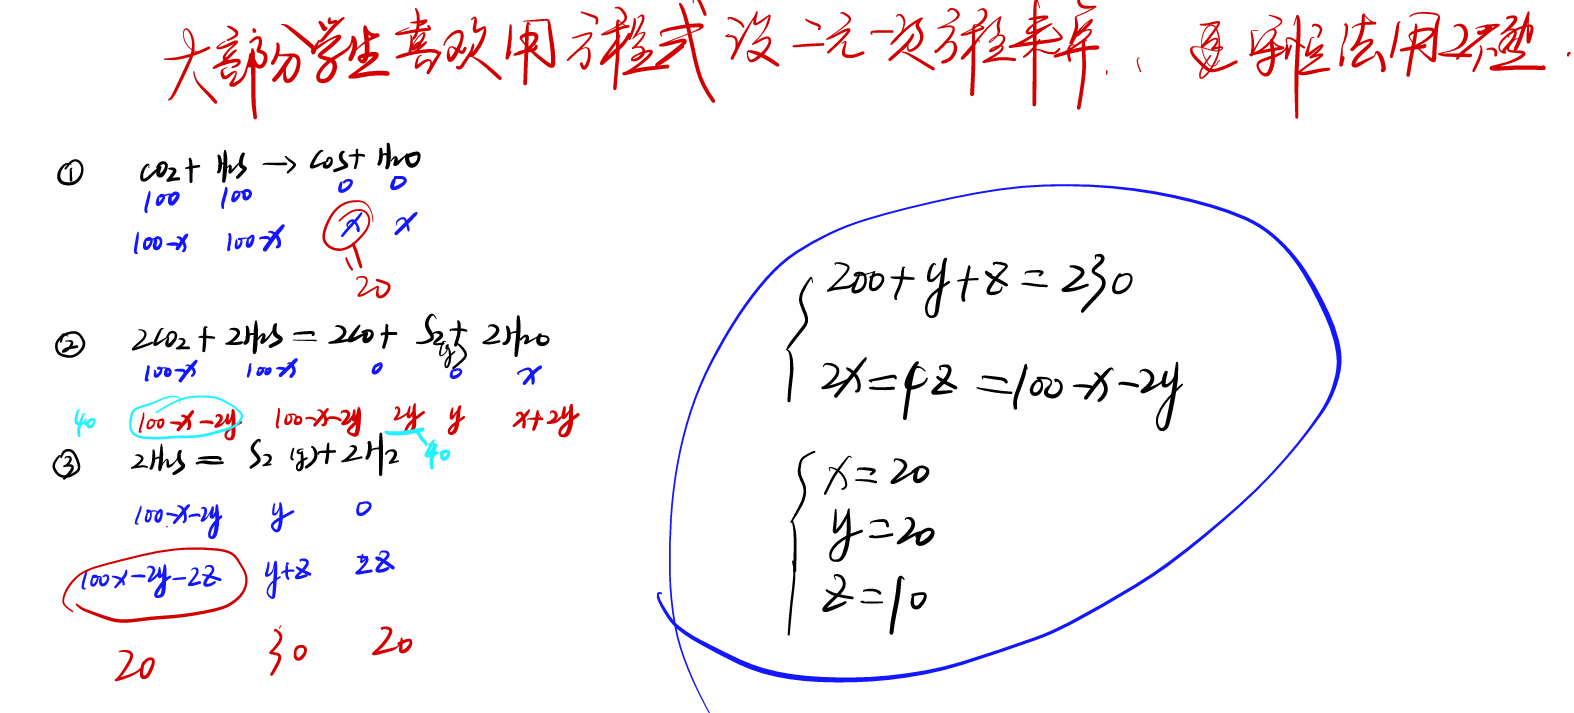 大部分学生喜欢用方程式设二元一次方程来算.. 法用不
① CO2 + H2S → COS + H2O
100 100 0 0
100-x 100-x x x
20
② 2CO2 + 2H2S = 2CO + S2(g) + 2H2O
100-x 100-x 0 0 x
40 100-x-2y 100-x-2y 2y y x+2y
③ 2H2S = S2 (g) + 2H2 40
100-x-2y y 0
100x-2y-2z y+z 2z
20 30 20
200+y+z=230
2x=4z=100-x-2y
x=20
y=20
z=10